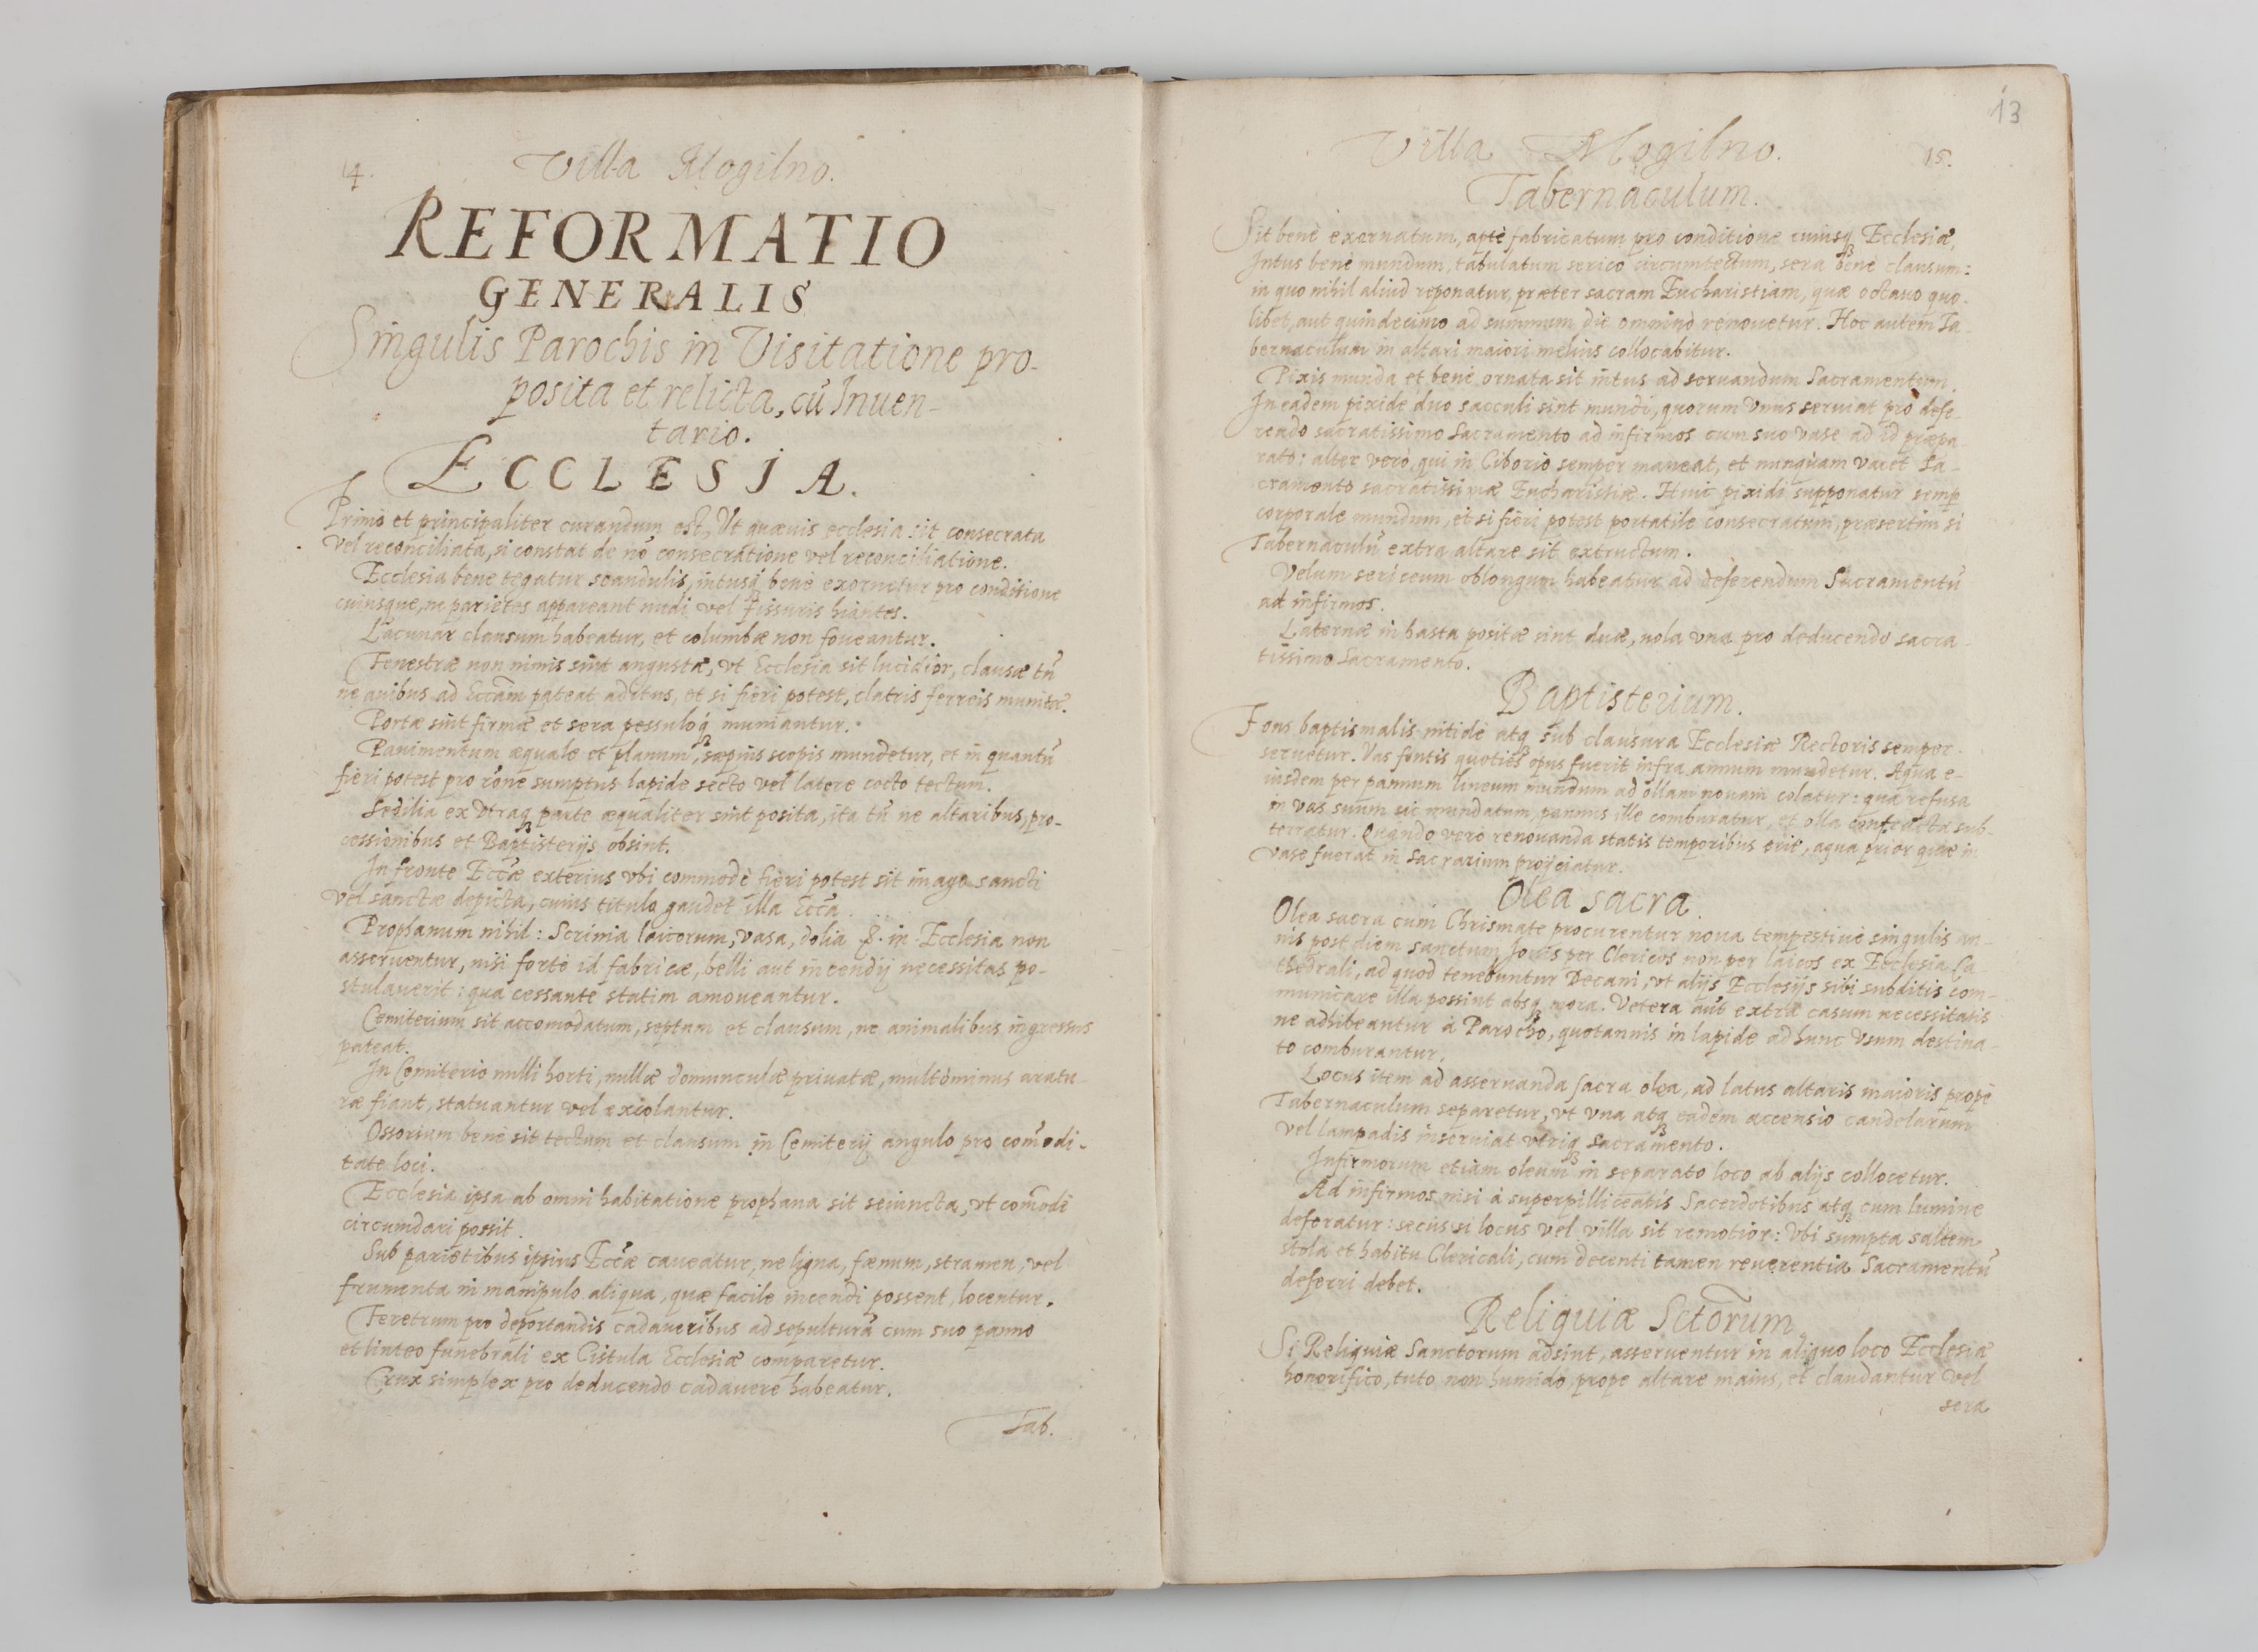 14.
Villa Mogilno.
REFORMATIO
GENERALIS
Singulis Parochis in Visitatione pro-
posita et relicta, cũ Inuen-
tario.
ECCLESJA.
Primò et principaliter curandum est, Vt quæuis ecclesia sit consecrata
vel reconciliata, si constat de nõ consecratione vel reconciliatione.
Ecclesia bene tegatur scandulis, intusq́ȝ benè exornetur pro conditione
cuiusque, ne parietes appareant nudi vel fissuris hiantes.
Lacunar clausum habeatur, et columbæ non foueantur.
Fenestræ non nimis sint angustæ, vt Ecclesia sit lucidior, clausæ tñ
ne auibus ad Eccãm pateat aditus, et si fieri potest, clatris ferreis muniter̃.
Portæ sint firmæ et sera pessuloq́ȝ muniantur.
Pauimentum æquale et planum, sæpius scopis mundetur, et in quantũ
fieri potest pro rõne sumptus lapide secto vel latere cocto tectum.
Sedilia ex vtraqȝ parte æqualiter sint posita, ita tñ ne altaribus, pro-
cessionibus et Baptisterijs obsint.
In fronte Eccæ exterius vbi commodè fieri potest sit imago sancti
vel sanctæ depicta, cuius titulo gaudet illa Ecca.
Prophanum nihil: Scrinia laicorum, vasa, dolia &. in Ecclesia non
asseruentur, nisi fortè id fabricæ, belli aut incendij necessitas po-
stulauerit: qua cessante statim amoueantur.
Cemiterium sit accomodatum, septum et clausum, ne animalibus ingressus
pateat.
In Cemiterio nulli horti, nullæ domunculæ priuatæ, multòminus aratu-
ræ fiant, statuantur vel excolantur.
Ossorium benè sit tectum et clausum in Cemiterij angulo pro com̃odi-
tate loci.
Ecclesia ipsa ab omni habitatione prophana sit seiuncta, vt com̃odè
circumdari possit.
Sub parietibus ipsius Eccæ caueatur, ne ligna, fœnum, stramen, vel
frumenta in manipulo aliqua, quæ facile incendi possent, locentur.
Feretrum pro deportandis cadaueribus ad sepulturã cum suo panno
et linteo funebrali ex Cistula Ecclesiæ comparetur.
Crux simplex pro deducendo cadauere habeatur.
Tab.
13
Villa Mogilno.
15.
Tabernaculum.
Sit benè exornatum, aptè fabricatum pro conditione cuiusqȝ Ecclesiæ,
Intus benè mundum, tabulatum serico circumtectum, sera benè clausum:
in quo nihil aliud reponatur, præter sacram Eucharistiam, quæ octauo quo-
libet, aut quindecimo ad summum die omninò renouetur. Hoc autem Ta-
bernaculum in altari maiori melius collocabitur.
Pixis munda et benè ornata sit intus ad seruandum Sacramentum.
In eadem pixide duo sacculi sint mundi, quorum vnus seruiat pro defe-
rendo sacratissimo Sacramento ad infirmos cum suo vase ad id præpa-
rato: alter verò, qui in Ciborio semper maneat, et nunquam vacet Sa-
cramento sacratissimæ Eucharistiæ. Huic pixidi supponatur semp
corporale mundum, et si fieri potest portatile consecratum, præsertim si
Tabernaculũ extra altare sit extructum.
Velum sericeum oblongum habeatur ad deferendum Sacramentũ
ad infirmos.
Laternæ in hasta positæ sint duæ, nola vna pro deducendo sacra-
tissimo Sacramento.
Baptisterium.
Fons baptismalis nitidè atqȝ sub clausura Ecclesiæ Rectoris semper
seruetur. Vas fontis quoties opus fuerit infra annum mundetur. Aqua e-
iusdem per pannum lineum mundum ad ollam nouam colatur: qua refusa
in vas suum sic mundatum, pannus ille comburatur, et olla confracta sub-
terratur. Quando verò renouanda statis temporibus erit, aqua prior quæ in
vase fuerat in Sacrarium proijciatur.
Olea sacra.
Olea sacra cum Chrismate procurentur noua tempestiuè singulis an-
nis post diem sanctum Jouis per Clericos non per laicos ex Ecclesia Ca-
thedrali, ad quod tenebuntur Decani, vt alijs Ecclesijs sibi subditis com-
municare illa possint absqȝ mora. Vetera aũt extra casum necessitatis
ne adhibeantur à Parocho, quotannis in lapide ad hunc vsum destina-
to comburantur.
Locus item ad asseruanda sacra olea, ad latus altaris maioris propè
Tabernaculum separetur, vt vna atqȝ eadem accensio candelarum
vel lampadis inseruiat vtriqȝ Sacramento.
Infirmorum etiam oleum in separato loco ab alijs collocetur.
Ad infirmos nisi à superpilliceatis Sacerdotibus atqȝ cum lumine
deferatur: secus si locus vel villa sit remotior: Vbi sumpta saltem
stola et habitu Clericali, cum decenti tamen reuerentia Sacramentũ
deferri debet.
Reliquiæ Sctorum
Si Reliquiæ Sanctorum adsint, asseruentur in aliquo loco Ecclesiæ
honorifico, tuto non humido prope altare maius, et claudantur vel
sera